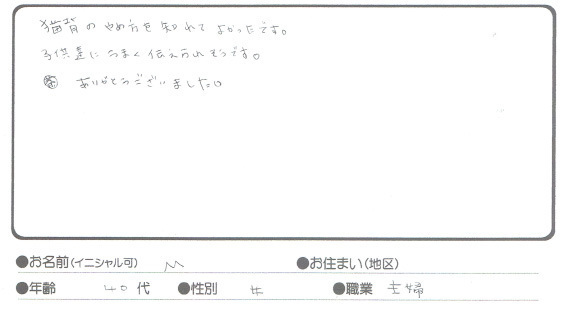 猫背のやめ方を知れてよかったです。
子供達にうまく伝えられそうです。
ありがとうございました。
●お名前(イニシャル可) M ●お住まい(地区)
●年齢 40代 ●性別 女 ●職業 主婦